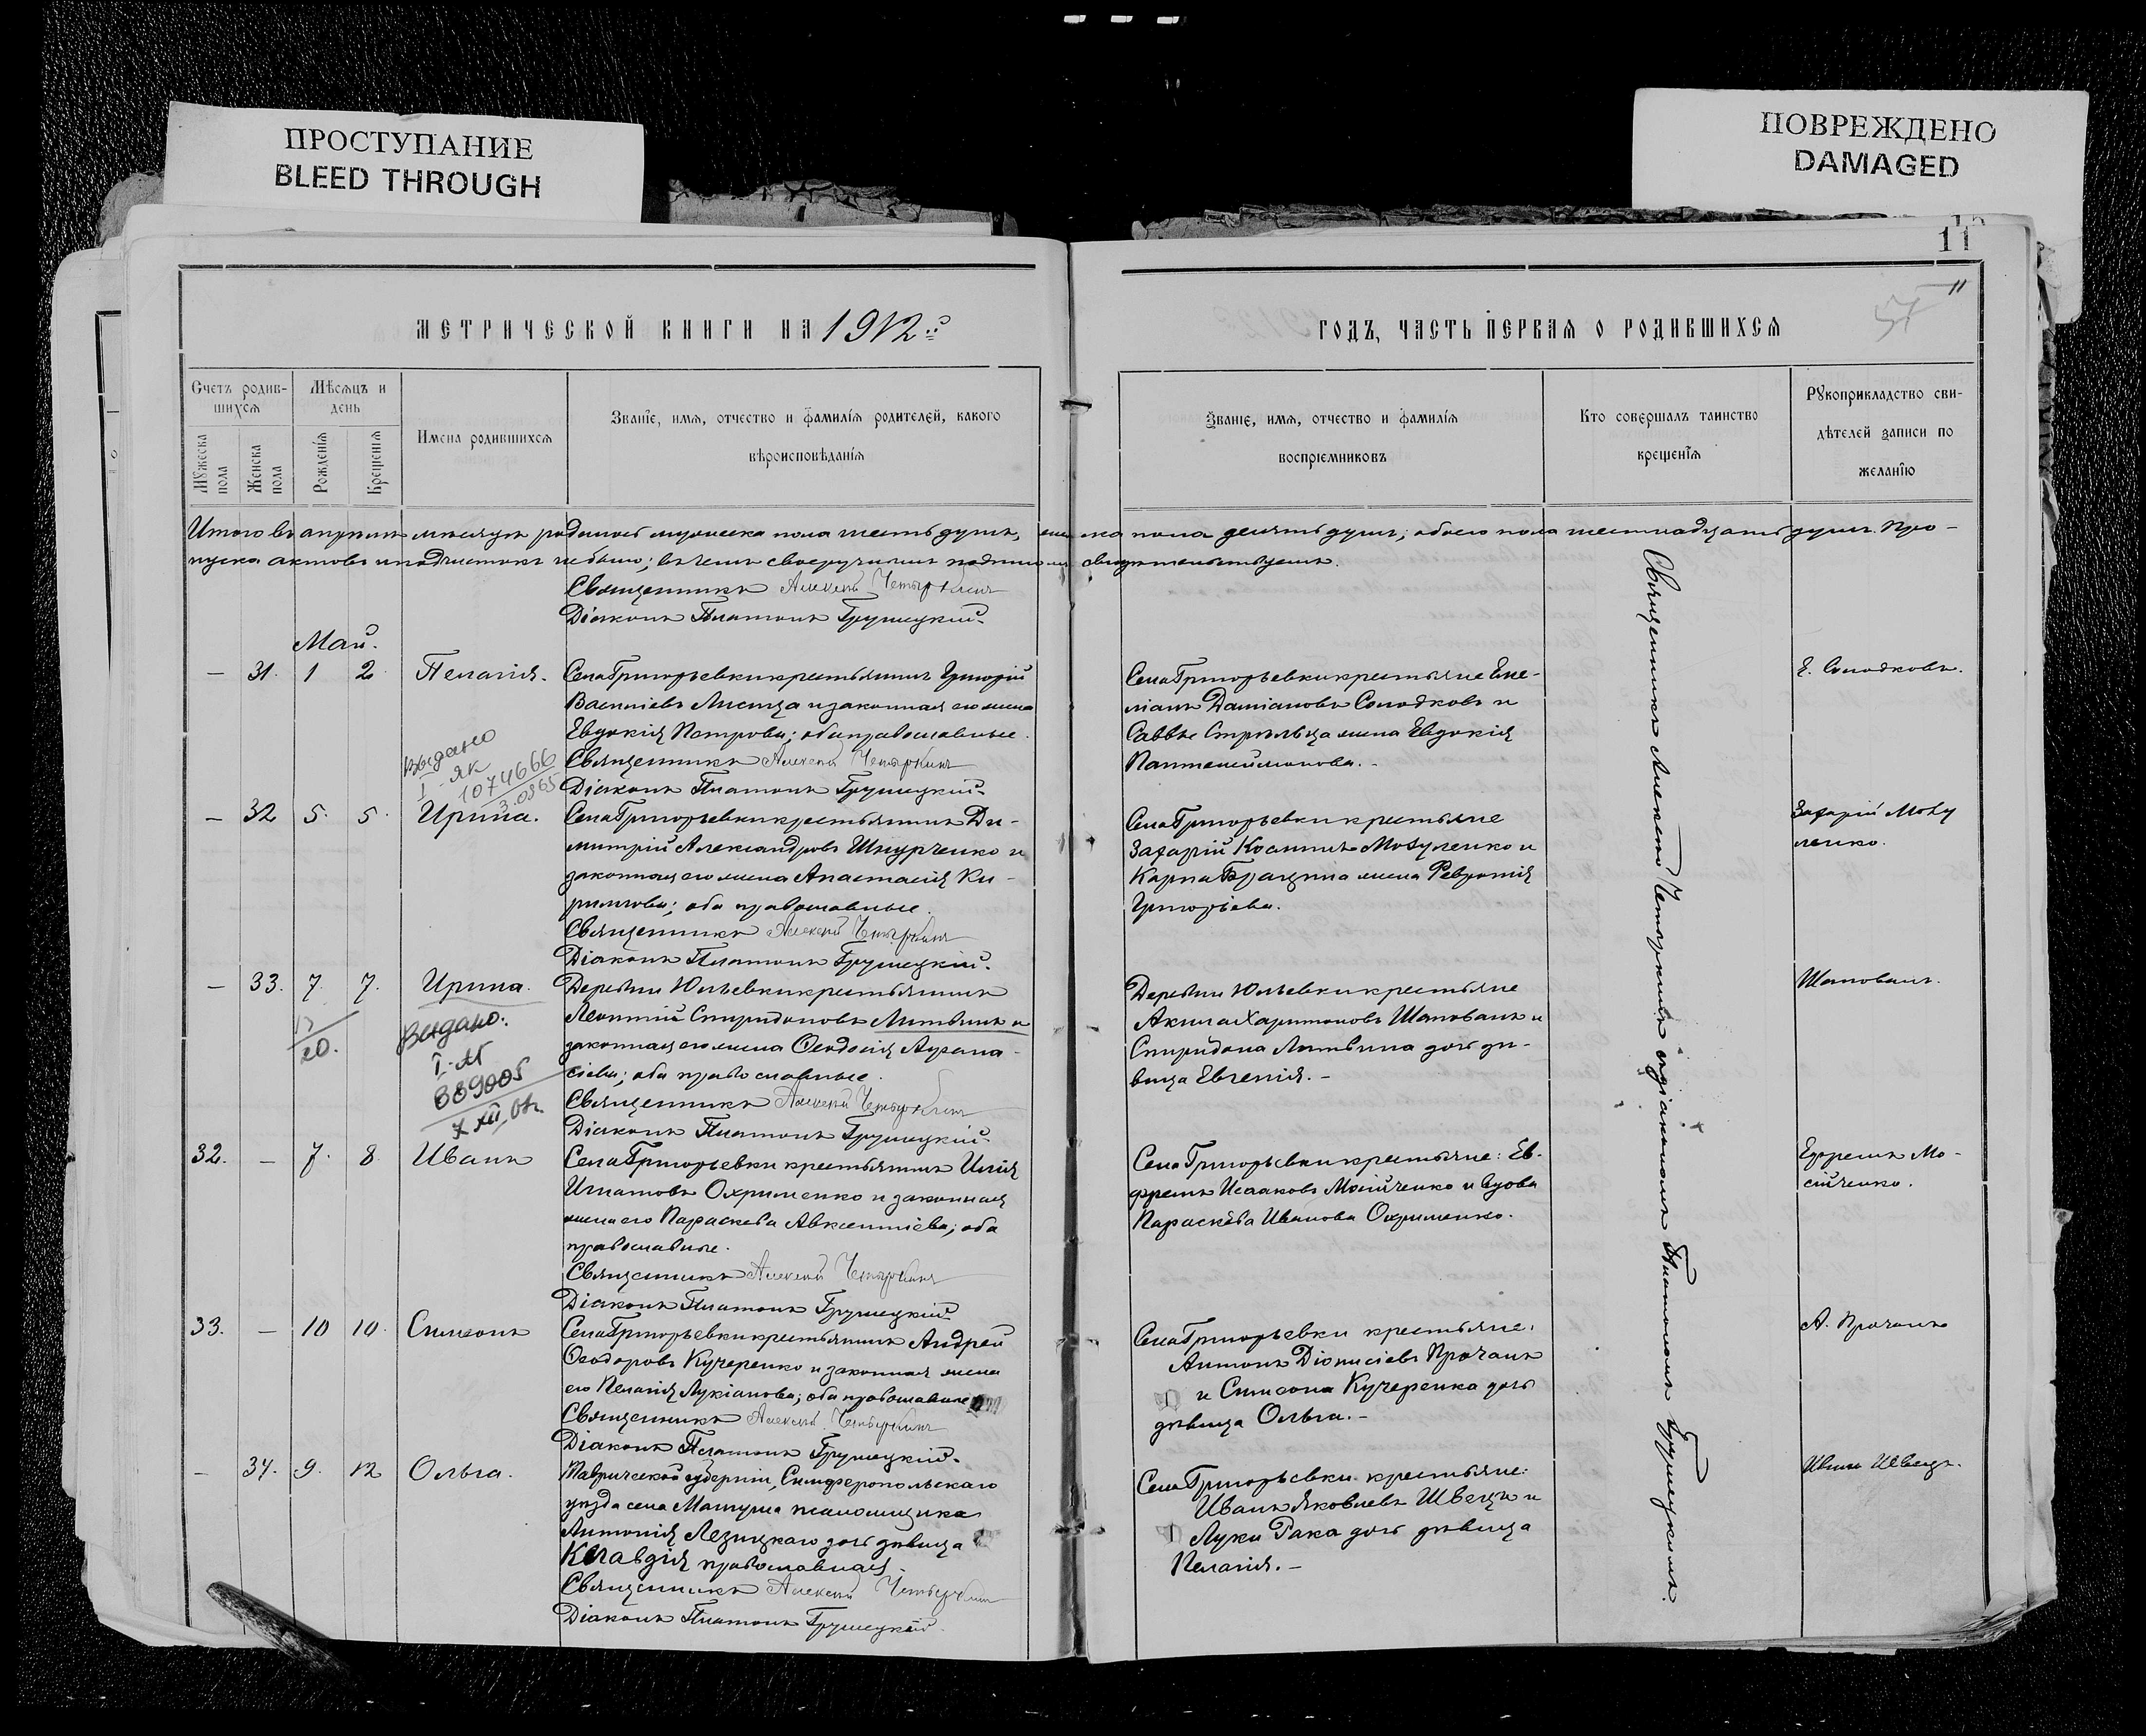 ПРОСТУПАНИЕ
BLEED THROUGH
ПОВРЕЖДЕНО
DAMAGED
11
11
57
МЕТРИЧЕСКОЙ КНИГИ НА 1912й
Счетъ родив-
шихся
Мѣсяцъ и
день
Мужеска
пола
Женска
пола
Рожденія
Крещенія
Имена родившихся
Званіе, имя, отчество и фамилія родителей, какого
вѣроисповѣданія
ГОДЪ, ЧАСТЬ ПЕРВАЯ О РОДИВШИХСЯ
Званіе, имя, отчество и фамилія
воспріемниковъ
Кто совершалъ таинство
крещенія
Рукоприкладство сви-
дѣтелей записи по
желанію
Итого въ апрѣлѣ мѣсяцѣ родилось мужеска пола шесть душъ, женска пола десять душъ; обоего пола шестнадцать душъ. Про-
пуска актовъ и подчистокъ не было; въ чемъ своеручнымъ подписомъ свидѣтельствуемъ.
Священникъ Алексѣй Четыркинъ
Діаконъ Платонъ Грушецкій
Май.
— 31. 1 2 Пелагія.
Села Григорьевки крестьянинъ Григорій
Василіевъ Лисица и законная его жена
Евдокія Петрова; оба православные.
Священникъ Алексѣй Четыркинъ
Діаконъ Платонъ Грушецкій
Села Григорьевки крестьяне Еме-
ліанъ Даміановъ Солодковъ и
Саввы Стрѣльца жена Евдокія
Пантелеимонова. -
Е. Солодковъ.
Выдано
I - ЯК
1074666
— 32 5. 5. Ирина.
Села Григорьевки крестьянинъ Ди-
митрій Александровъ Шнурченко и
законная его жена Анастасія Ки-
риллова; оба православные.
Священникъ Алексѣй Четыркинъ
Діаконъ Платонъ Грушецкій.
Села Григорьевки крестьяне
Захарій Косминъ Мовуленко и
Карпа Брацина жена Февронія
Григоріева.
Захарій Мову
ленко.
— 33. 7. 7. Ирина.
20.
Выдано:
889005
Деревни Юльевки крестьянинъ
Леонтій Спиридоновъ Литвинъ и
законная его жена Ѳеодосія Аѳана-
сіева; оба православные.
Священникъ Алексѣй Четыркинъ
Діаконъ Платонъ Грушецкій.
Деревни Юльевки крестьяне
Акила Харитоновъ Шаповалъ и
Спиридона Литвина дочь дѣ-
вица Евгенія. -
Шаповалъ.
32. — 7. 8. Иванъ
Села Григорьевки крестьянинъ Илія
Игнатовъ Охрименко и законная
жена его Параскева Авксентіева; оба
православные.
Священникъ Алексѣй Четыркинъ
Діаконъ Платонъ Грушецкій
Села Григорьевки крестьяне: Еф-
фремъ Исааковъ Мосійченко и вдова
Параскева Иванова Охрименко.
Ефремъ Мо-
сійченко.
33. — 10 10 Симеонъ
Села Григорьевки крестьянинъ Андрей
Ѳеодоровъ Кучеренко и законная жена
его Пелагія Лукіанова; оба православные
Священникъ Алексѣй Четыркинъ
Діаконъ Платонъ Грушецкій.
Села Григорьевки крестьяне:
Антонъ Діонисіевъ Прочанъ
и Симеона Кучеренка дочь
дѣвица Ольга. -
А. Прочанъ
— 34. 9. 12 Ольга.
Таврической губерніи, Симферопольскаго
уѣзда села Мангуша
Антонія Лезицкаго дочь дѣвица
Клавдія православная.
Священникъ Алексѣй Четыркинъ
Діаконъ Платонъ Грушецкій.
Села Григорьевки крестьяне:
Иванъ Яковлевъ Швецъ и
Луки Рака дочь дѣвица
Пелагія. -
Иванъ Швецъ.
Священникъ Алексѣй Четыркинъ съ діакономъ Платономъ Грушецкимъ.